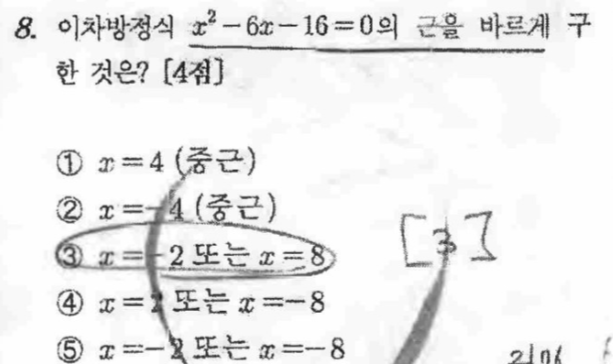 8. 이차방정식 x² - 6x - 16 = 0의 근을 바르게 구
한 것은? [4점]
① x = 4 (중근)
② x = -4 (중근)
③ x = -2 또는 x = 8
[3]
④ x = 2 또는 x = -8
⑤ x = -2 또는 x = -8